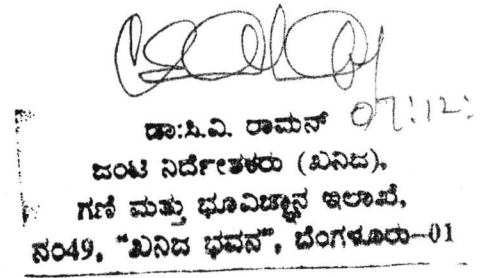 07:12:
ಡಾ:ಸಿ.ವಿ. ರಾಮನ್
ಜಂಟಿ ನಿರ್ದೇಶಕರು (ಖನಿಜ),
ಗಣಿ ಮತ್ತು ಭೂವಿಜ್ಞಾನ ಇಲಾಖೆ,
ನಂ49, "ಖನಿಜ ಭವನ", ಬೆಂಗಳೂರು-01